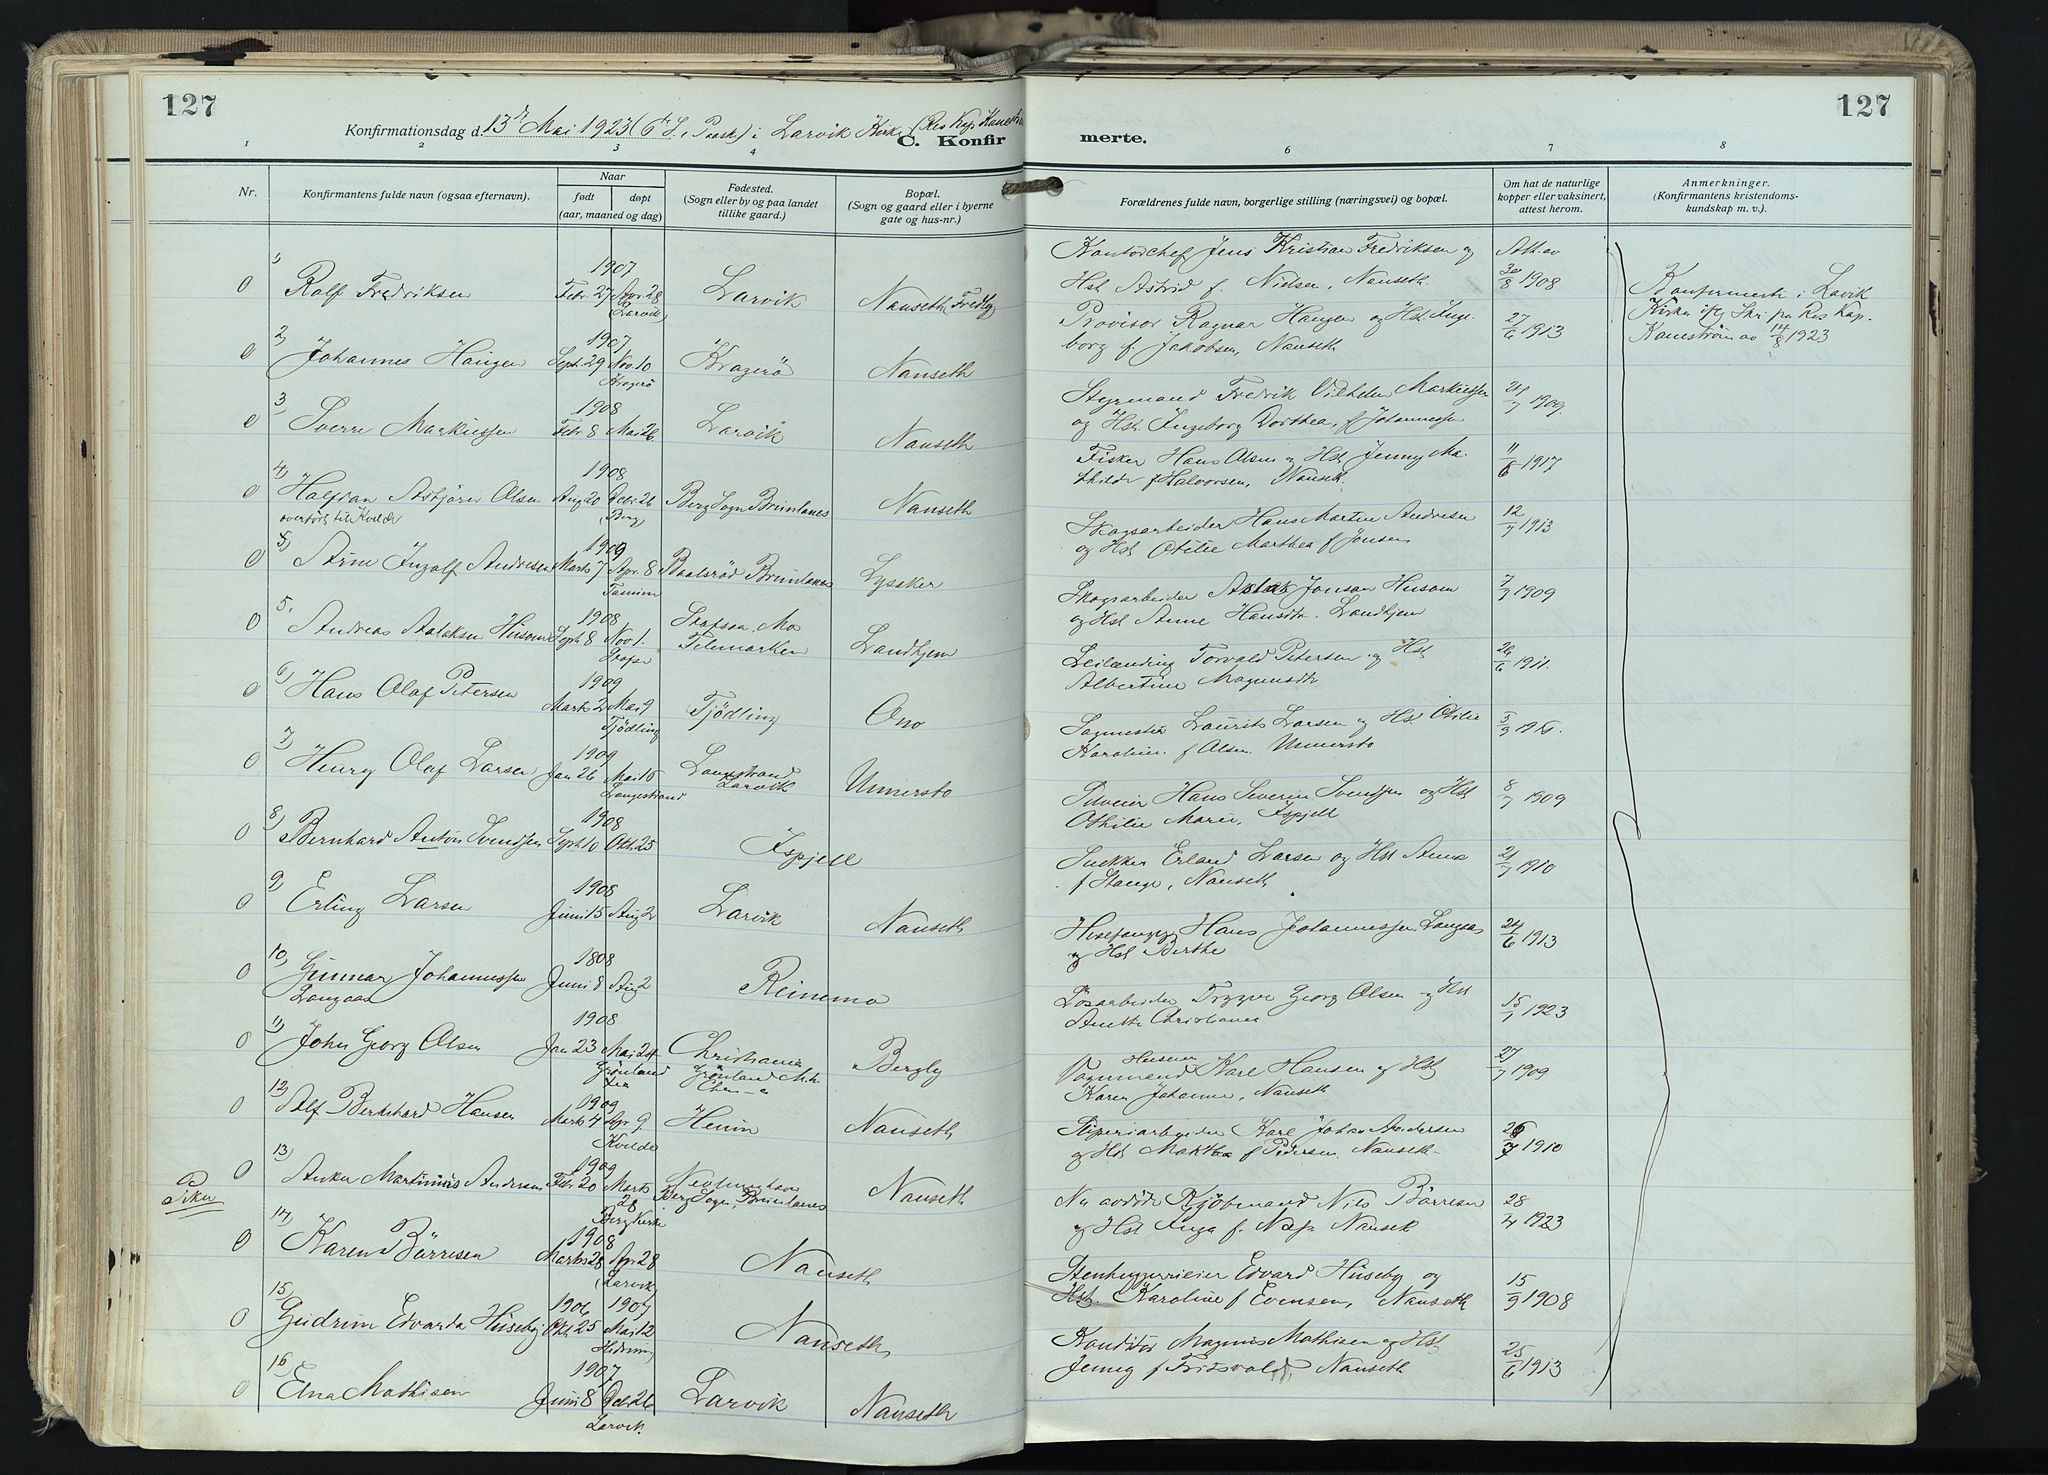 127
127
Konfirmationsdag d. 13de Mai 1923 (6te S. i Paaske) i Larvik Kirke (Res Kap
C. Konfir
merte.
1 2 3 4 6 7 8
Nr.
Konfirmantens fulde navn (ogsaa efternavn).
Naar
født døpt
(aar, maaned og dag)
Fødested.
(Sogn eller by og paa landet
tillike gaard.)
Bopæl.
(Sogn og gaard eller i byerne
gate og hus-nr.)
Forældrenes fulde navn, borgerlige stilling (næringsvei) og bopæl.
Om hat de naturlige
kopper eller vaksinert,
attest herom.
Anmerkninger.
(Konfirmantens kristendoms-
kundskap m. v.).
1907
0 1) Rolf Fredriksen Febr. 27 Apr 28 Larvik Nanseth (Fredly)
(Larvik)
Kontorchef Jens Kristian Fredriksen og
Hst Astrid f. Nielsen, Nanseth.
Att. av
30/8 1908
Konfirmerte i Lavik
Kirke iflg Skr. fra Res Kap.
Kanestrøm av 14/8 1923
1907
0 2) Johannes Haugen Sept. 29 Nov. 10 Kragerö Nanseth
Kragerö
Provisor Ragnar Haugen og Hst Inge-
borg f. Jakobsen, Nanseth
27/6 1913
1908
0 3) Sverre Markussen Febr 8 Mai 26 Larvik Nanseth
Styrmand Fredrik Vilhelm Markussen
og Hst. Ingeborg Dorthea, f Johannessen
24/7 1909
1908
0 4) Halfdan Asbjörn Olsen Aug 20 Octr. 26 Berg Sogn Brunlanes Nanseth
overført til Kvelde (Berg)
Fisker Hans Olsen og Hst Jenny Ma-
thilde f Halvorsen, Nanseth.
11/6 1917
1909
0 5) Arne Ingolf Andresen Marts 7 Apr. 8 Baalsrød Brunlanes Lysaker
Tanum
Skogsarbeider Hans Martin Andresen
og Hst Otilie Marthea f Jonsen
12/7 1913
1908
0 5. Andreas Aslaksen Husom Sept. 8 Nov 1. Skafsaa, Mo Landhjem
Telemarken
Skogsarbeider Aslak Jonson Husom
og Hst Anne Hansdtr. Landhjem
7/7 1909
1909
0 6) Hans Olaf Petersen Marts 2 Mai 9 Tjödling Ono
Tjödling
Leilænding Torvald Petersen og Hst
Albertine Magnusdtr
26/6 1911.
1909
0 7) Henry Olaf Larsen Jan 26 Mai 16 Langestrand Unnersbo
Langestrand Larvik
Sagmester Laurits Larsen og Hst Otilie
Karoline f Olsen. Unnersbo
1908
0 8) Bernhard Anton Svendsen Sept. 10 Okt. 25 Ispjell
Hans Severin Svendsen og Hst
Othilie Marie, Ispjell
8/7 1909
1908
0 9) Erling Larsen Juni 15 Aug 2 Larvik Nanseth
Snekker Erland Larsen og Hst Anna
f Stange, Nanseth
21/7 1910
1808
0 10) Gunnar Johannessen Juni 8 Aug 2 Reinemo
Langaas
Hans Johannessen Langaas
og Hst Berthe
24/6 1913
1908
0 11) John Georg Olsen Jan 23 Mai 24 Christiania Bergby
Grönland
Lösarbeider Trygve Georg Olsen og Hst
Anette Christiania
15/1 1923
1909
0 12) Alf Bernhard Hansen Marts 4 Apr 9. Hemm Nanseth
Kvelde
Vognmand Karl Hansen og Hst
Karen Johanne, Nanseth
27/7 1909
1909
0 13) Anker Martinius Andersen Febr. 20 Marts 28 Nanseth
Berg Sogn, Brunlanes
Berg Kirke
Karl Johan Andersen
og Hst Makthea f Pedersen. Nanseth
26/7 1910
Piker
1908
0 14) Karen Börresen Marts 28 Apr 28 Nanseth
(Larvik)
Nu avdöde Kjöbmand Nils Börresen
og Hst Inga f. Næss Nanseth
28/4 1923
1906 1907
0 15) Gudrun Edvarda Huseby Okt. 25 Mai 12 Nanseth
Hedrum
Stenhuggerieier Edvard Huseby og
Hst. Karoline f Evensen, Nanseth
15/9 1908
1907
0 16 Elna Mathisen Juni 8 Oct. 26 Larvik Nanseth
Larvik.
Konditor Magnus Mathisen og Hst
Jenny f Fridsvold, Nanseth
25/6 1913